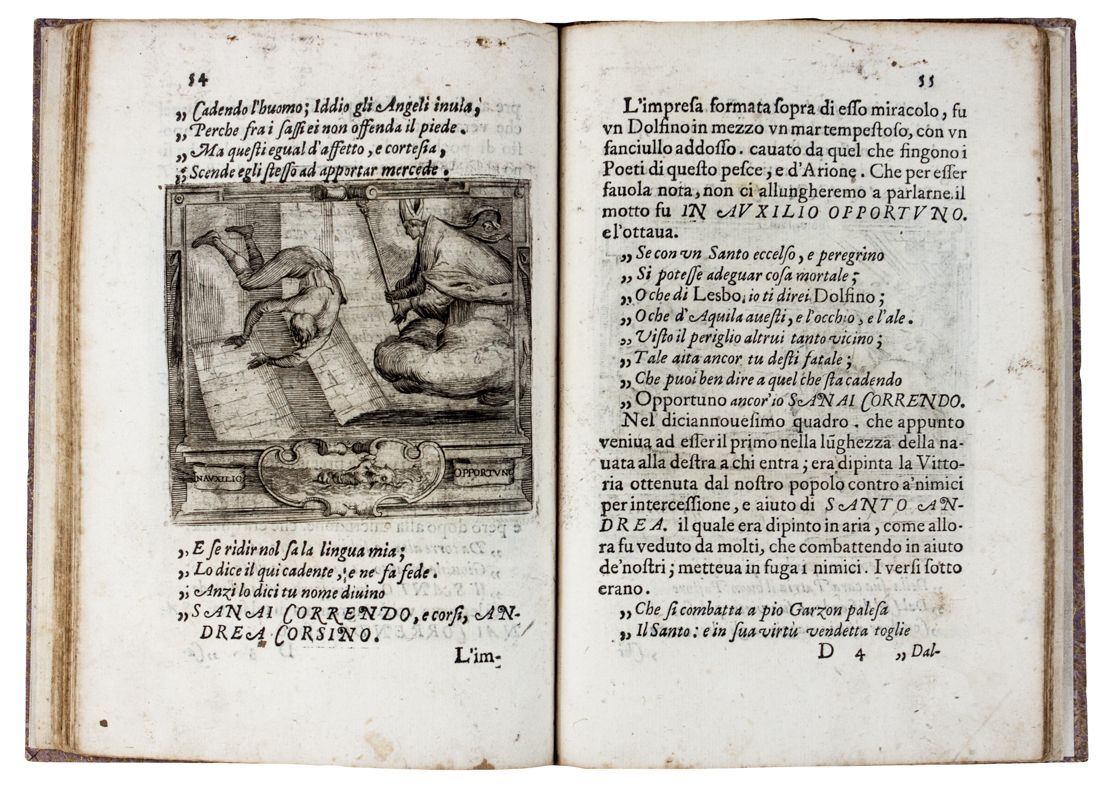 54
„ Cadendo l'huomo; Iddio gli Angeli inuia,
„ Perche fra i ſaſſi ei non offenda il piede.
„ Ma queſti egual d'affetto, e corteſia,
„ Scende egli ſteſſo ad apportar mercede.
IN AVXILIO
OPPORTVNO
„ E ſe ridir nol ſa la lingua mia;
„ Lo dice il qui cadente, e ne fa fede.
„ Anzi lo dici tu nome diuino
„ SANAI CORRENDO, e corſi, AN-
DREA CORSINO.
L'im-
55
L'impreſa formata ſopra di eſſo miracolo, fu
vn Dolfino in mezzo vn mar tempeſtoſo, con vn
fanciullo addoſſo. cauato da quel che fingono i
Poeti di queſto peſce, e d'Arione. Che per eſſer
fauola nota, non ci allungheremo a parlarne. il
motto fu IN AVXILIO OPPORTVNO.
e l'ottaua.
„ Se con vn Santo eccelſo, e peregrino
„ Si poteſſe adeguar coſa mortale;
„ O che di Lesbo, io ti direi Dolfino;
„ O che d'Aquila aueſti, e l'occhio, e l'ale.
„ Viſto il periglio altrui tanto vicino;
„ Tale aita ancor tu deſti fatale;
„ Che puoi ben dire a quel che ſta cadendo
„ Opportuno ancor'io SANAI CORRENDO.
Nel diciannoueſimo quadro. che appunto
veniua ad eſſer il primo nella lũghezza della na-
uata alla deſtra a chi entra; era dipinta la Vitto-
ria ottenuta dal noſtro popolo contro a'nimici
per interceſſione, e aiuto di SANTO AN-
DREA. il quale era dipinto in aria, come allo-
ra fu veduto da molti, che combattendo in aiuto
de'noſtri; metteua in fuga i nimici. I verſi ſotto
erano.
„ Che ſi combatta a pio Garzon paleſa
„ Il Santo: e in ſua virtù vendetta toglie
D 4 „ Dal-